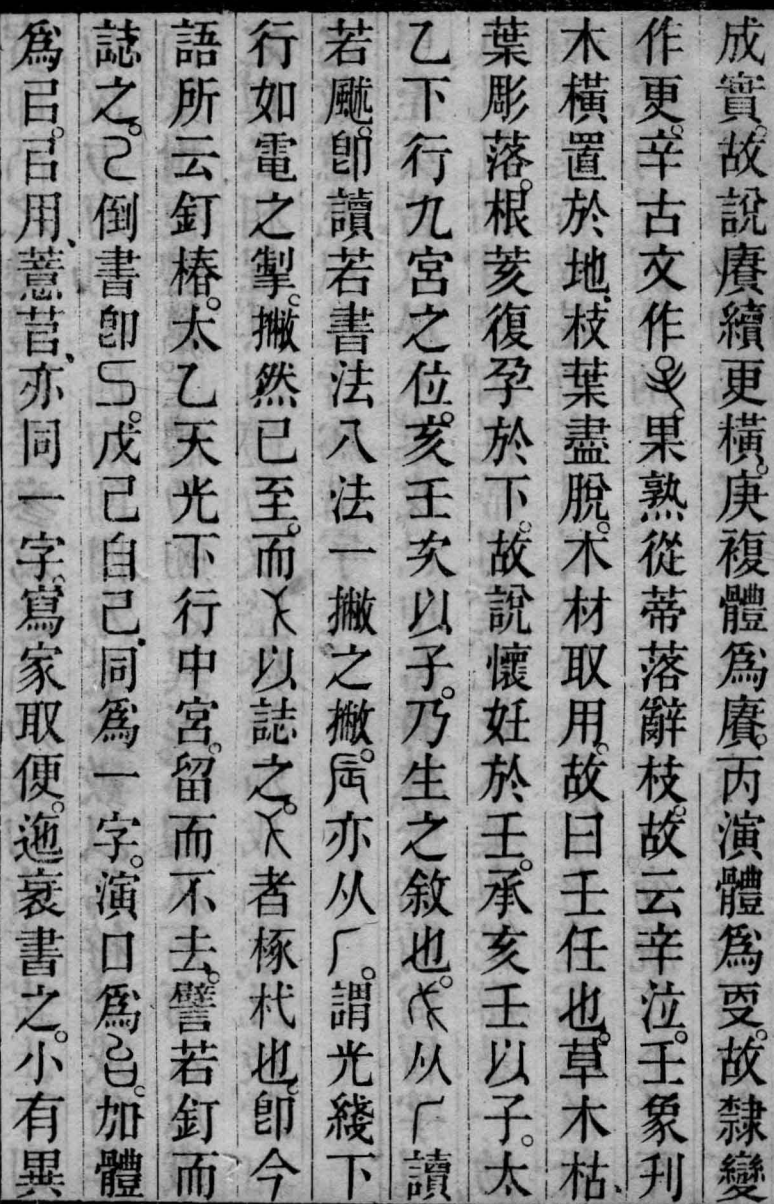 成實。故說賡續更橫。庚複體爲賡。丙演體爲㪅。故隸變
作更。辛古文作。果熟從蒂落辭枝。故云辛泣。壬象刋
木橫置於地。枝葉盡脫。木材取用。故曰壬任也。草木枯、
葉彫落。根荄復孕於下。故說懷妊於壬。承亥壬以子。太
乙下行九宮之位。亥壬次以子。乃生之敘也。从𠂆讀
若颩。卽讀若書法八法一撇之撇。亦从𠂆。謂光綫下
行如電之掣。撇然已至。而以誌之。者椓杙也。卽今
語所云釘樁。太乙天光下行中宮。留而不去。譬若釘而
誌之。倒書卽。戊己自己。同爲一字。演口爲。加體
爲㠯。㠯用、薏苢、亦同一字。寫家取便。迤衺書之。小有異